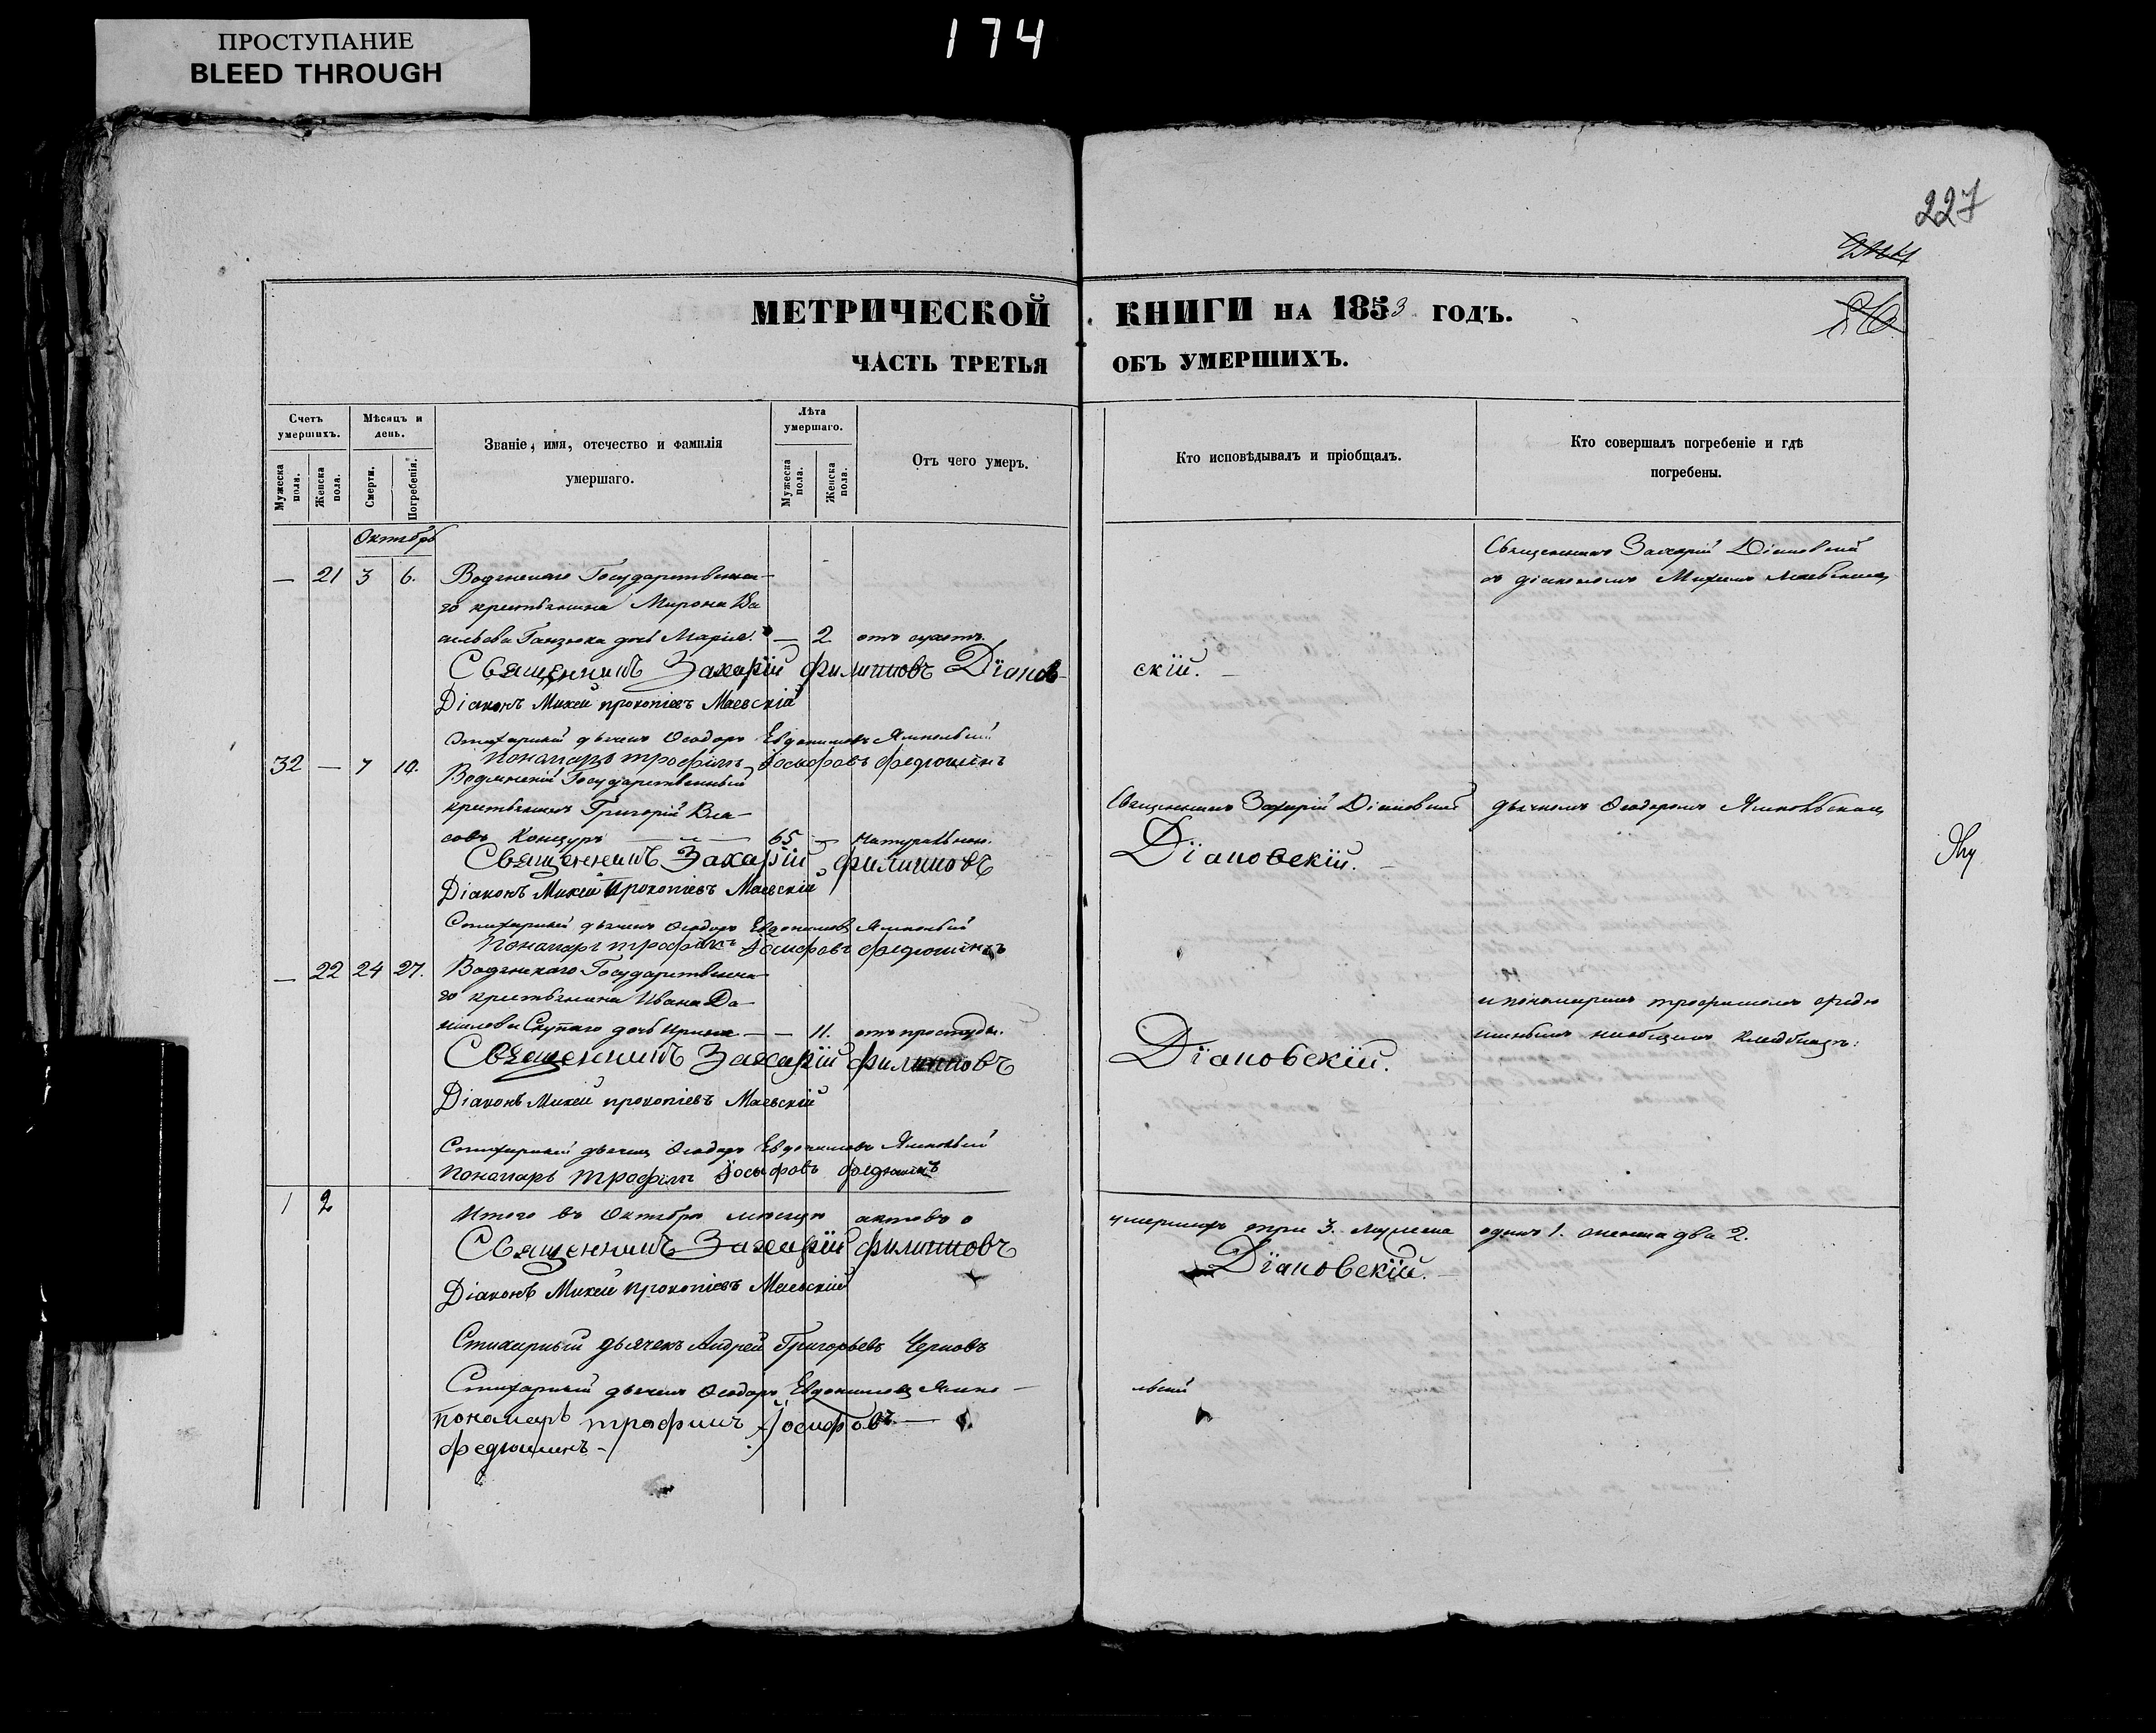 ПРОСТУПАНИЕ
BLEED THROUGH
174
227
МЕТРИЧЕСКОЙ КНИГИ НА 1853 ГОДЪ.
ЧАСТЬ ТРЕТЬЯ ОБЪ УМЕРШИХЪ.
Счетъ умершихъ.
Мужеска пола.
Женска пола.
Мѣсяцъ и день.
Смерти.
Погребенія.
Званіе, имя, отечество и фамилія умершаго.
Лѣта умершаго.
Мужеска пола.
Женска пола.
Отъ чего умеръ.
Кто исповѣдывалъ и пріобщалъ.
Кто совершалъ погребеніе и гдѣ погребены.
Октябрь
— 21 3 6. Водянскаго Государственна-
го крестьянина Мирона Ва
сильева дочь Марія. — 2 отъ
Священникъ Захарій Діановскій
съ діакономъ Михеемъ Маевскимъ
Священникъ Захарій Филиповъ Діанов-
скій.
Діаконъ Михей Прокопіевъ Маевскій
Стихарный дьячекъ Ѳеодоръ Евдокимовъ Ямпольскій
Пономарь Трофимъ Іосифовъ Федюшинъ
32 — 7 10. Водянскій Государственный
крестьянинъ Григорій Вла-
совъ Концуръ — 65 — натуральною.
Священникъ Захарій Діановскій
дьячкомъ Ѳеодоромъ Ямпольскимъ
Священникъ Захарій Филиповъ
Діановскій.
Діаконъ Михей Прокопіевъ Маевскій
Стихарный дьячекъ Ѳеодоръ Евдокимовъ Ямпольскій
Пономарь Трофимъ Іосифовъ Федюшинъ
— 22 24 27. Водянскаго Государственна
го крестьянина Ивана Да-
нилова дочь Ирина — — 11. отъ простуды.
и пономаремъ Трофимомъ Федю
шинымъ на общемъ кладбищѣ:
Священникъ Захарій Филиповъ
Діановскій.
Діаконъ Михей Прокопіевъ Маевскій
Стихарный дьячекъ Ѳеодоръ Евдокимовъ Ямпольскій
Пономарь Трофимъ Іосифовъ Федюшинъ
1 2 Итого въ Октябрѣ мѣсяцѣ актовъ о
умершихъ три 3. мужеска одинъ 1. женска два 2.
Священникъ Захарій Филиповъ
Діановскій.
Діаконъ Михей Прокопіевъ Маевскій
Стихарный дьячекъ Андрей Григорьевъ Черновъ
Стихарный дьячекъ Ѳеодоръ Евдокимовъ Ямпо-
льскій
Пономарь Трофимъ Іосифовъ —
Федюшинъ —